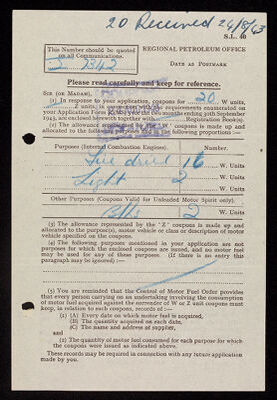 20 Received 24/8/43
S.L. 40
This Number should be quoted
on all Communications.
REGIONAL PETROLEUM OFFICE
DATE AS POSTMARK
Please read carefully and keep for reference.
SIR (OR MADAM),
(1) In response to your application, coupons for 20 W units,
Z units, in
requirements enumerated on
your Application Form
months ending 30th September
1943, are enclosed herewith together with Registration Book(s).
(2) The allowance coupons is made up and
allocated to the following following proportions :—
Purposes (Internal Combustion Engines). Number.
16 W. Units
Light 2 W. Units
W. Units
Other Purposes (Coupons Valid for Unleaded Motor Spirit only).
2 W. Units
(3) The allowance represented by the "Z" coupons is made up and
allocated to the purpose(s), motor vehicle or class or description of motor
vehicle specified on the coupons.
(4) The following purposes mentioned in your application are not
purposes for which the enclosed coupons are issued, and no motor fuel
may be used for any of these purposes. (If there is no entry this
paragraph may be ignored) :—
(5) You are reminded that the Control of Motor Fuel Order provides
that every person carrying on an undertaking involving the consumption
of motor fuel acquired against the surrender of W or Z unit coupons must
keep, in relation to such coupons, records of :—
(1) (A) Every date on which motor fuel is acquired,
(B) The quantity acquired on each date,
(C) The name and address of supplier,
and
(2) The quantity of motor fuel consumed for each purpose for which
the coupons were issued as indicated above.
These records may be required in connection with any future application
made by you.